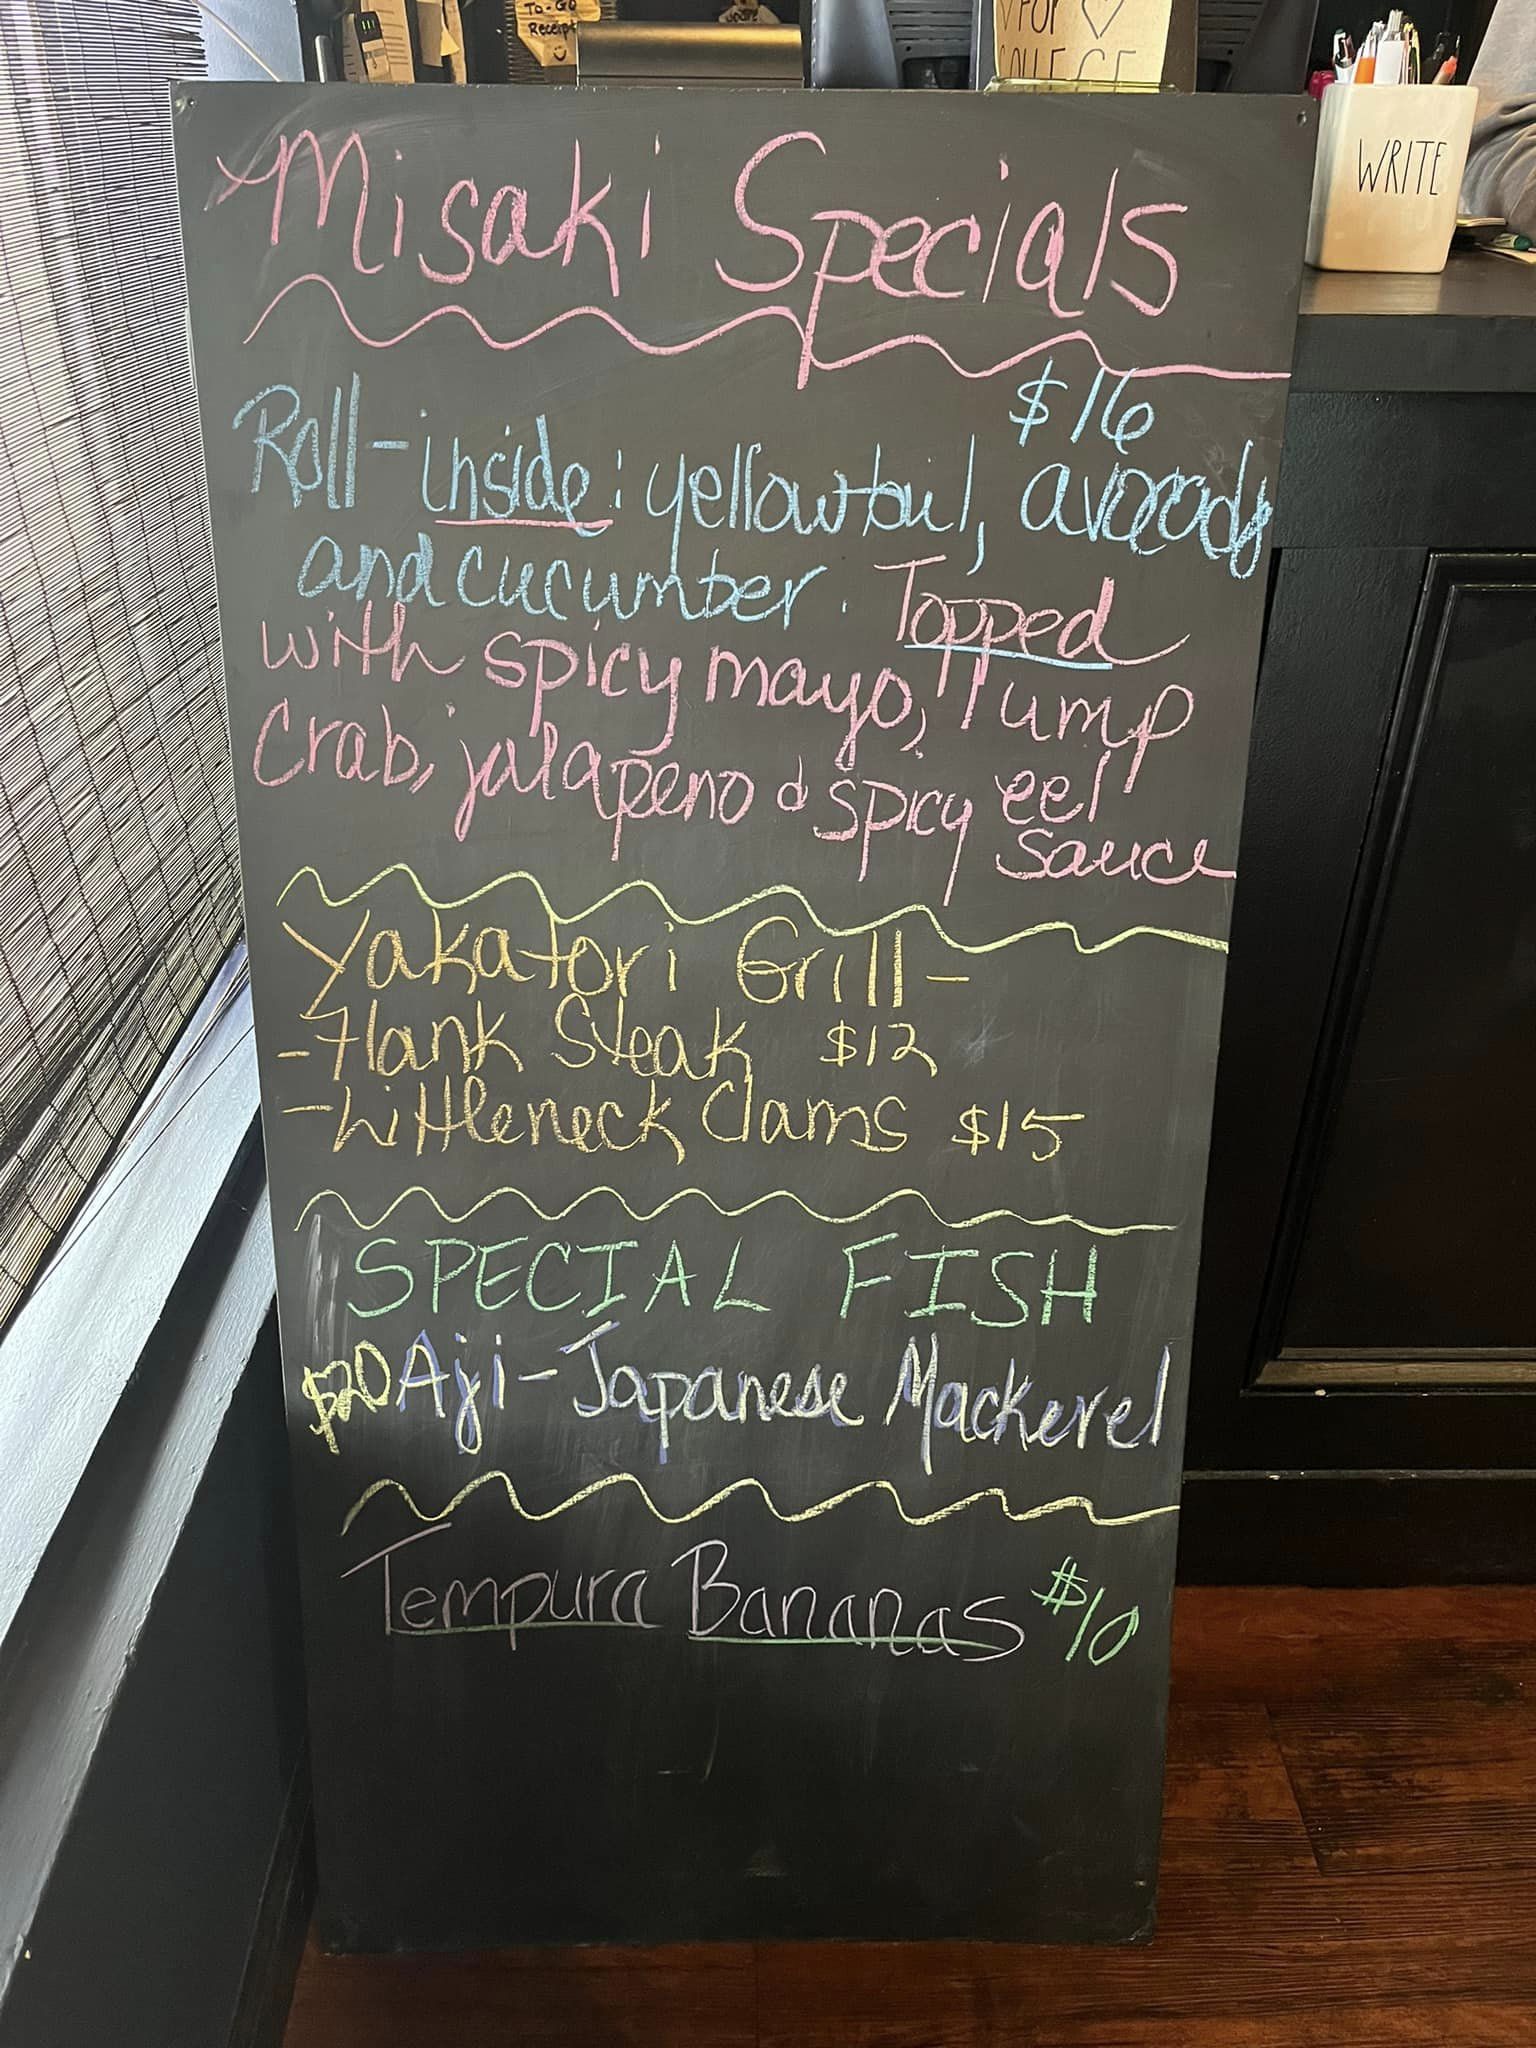 To-Go
Receipt
FOR
WRITE
Misaki Specials
$16
Roll - inside: yellowtail, avocado
and cucumber. Topped
with spicy mayo, lump
crab, jalapeno & spicy eel
sauce
Yakatori Grill -
- Flank Steak $12
- Littleneck Clams $15
SPECIAL FISH
$20 Aji - Japanese Mackerel
Tempura Bananas $10